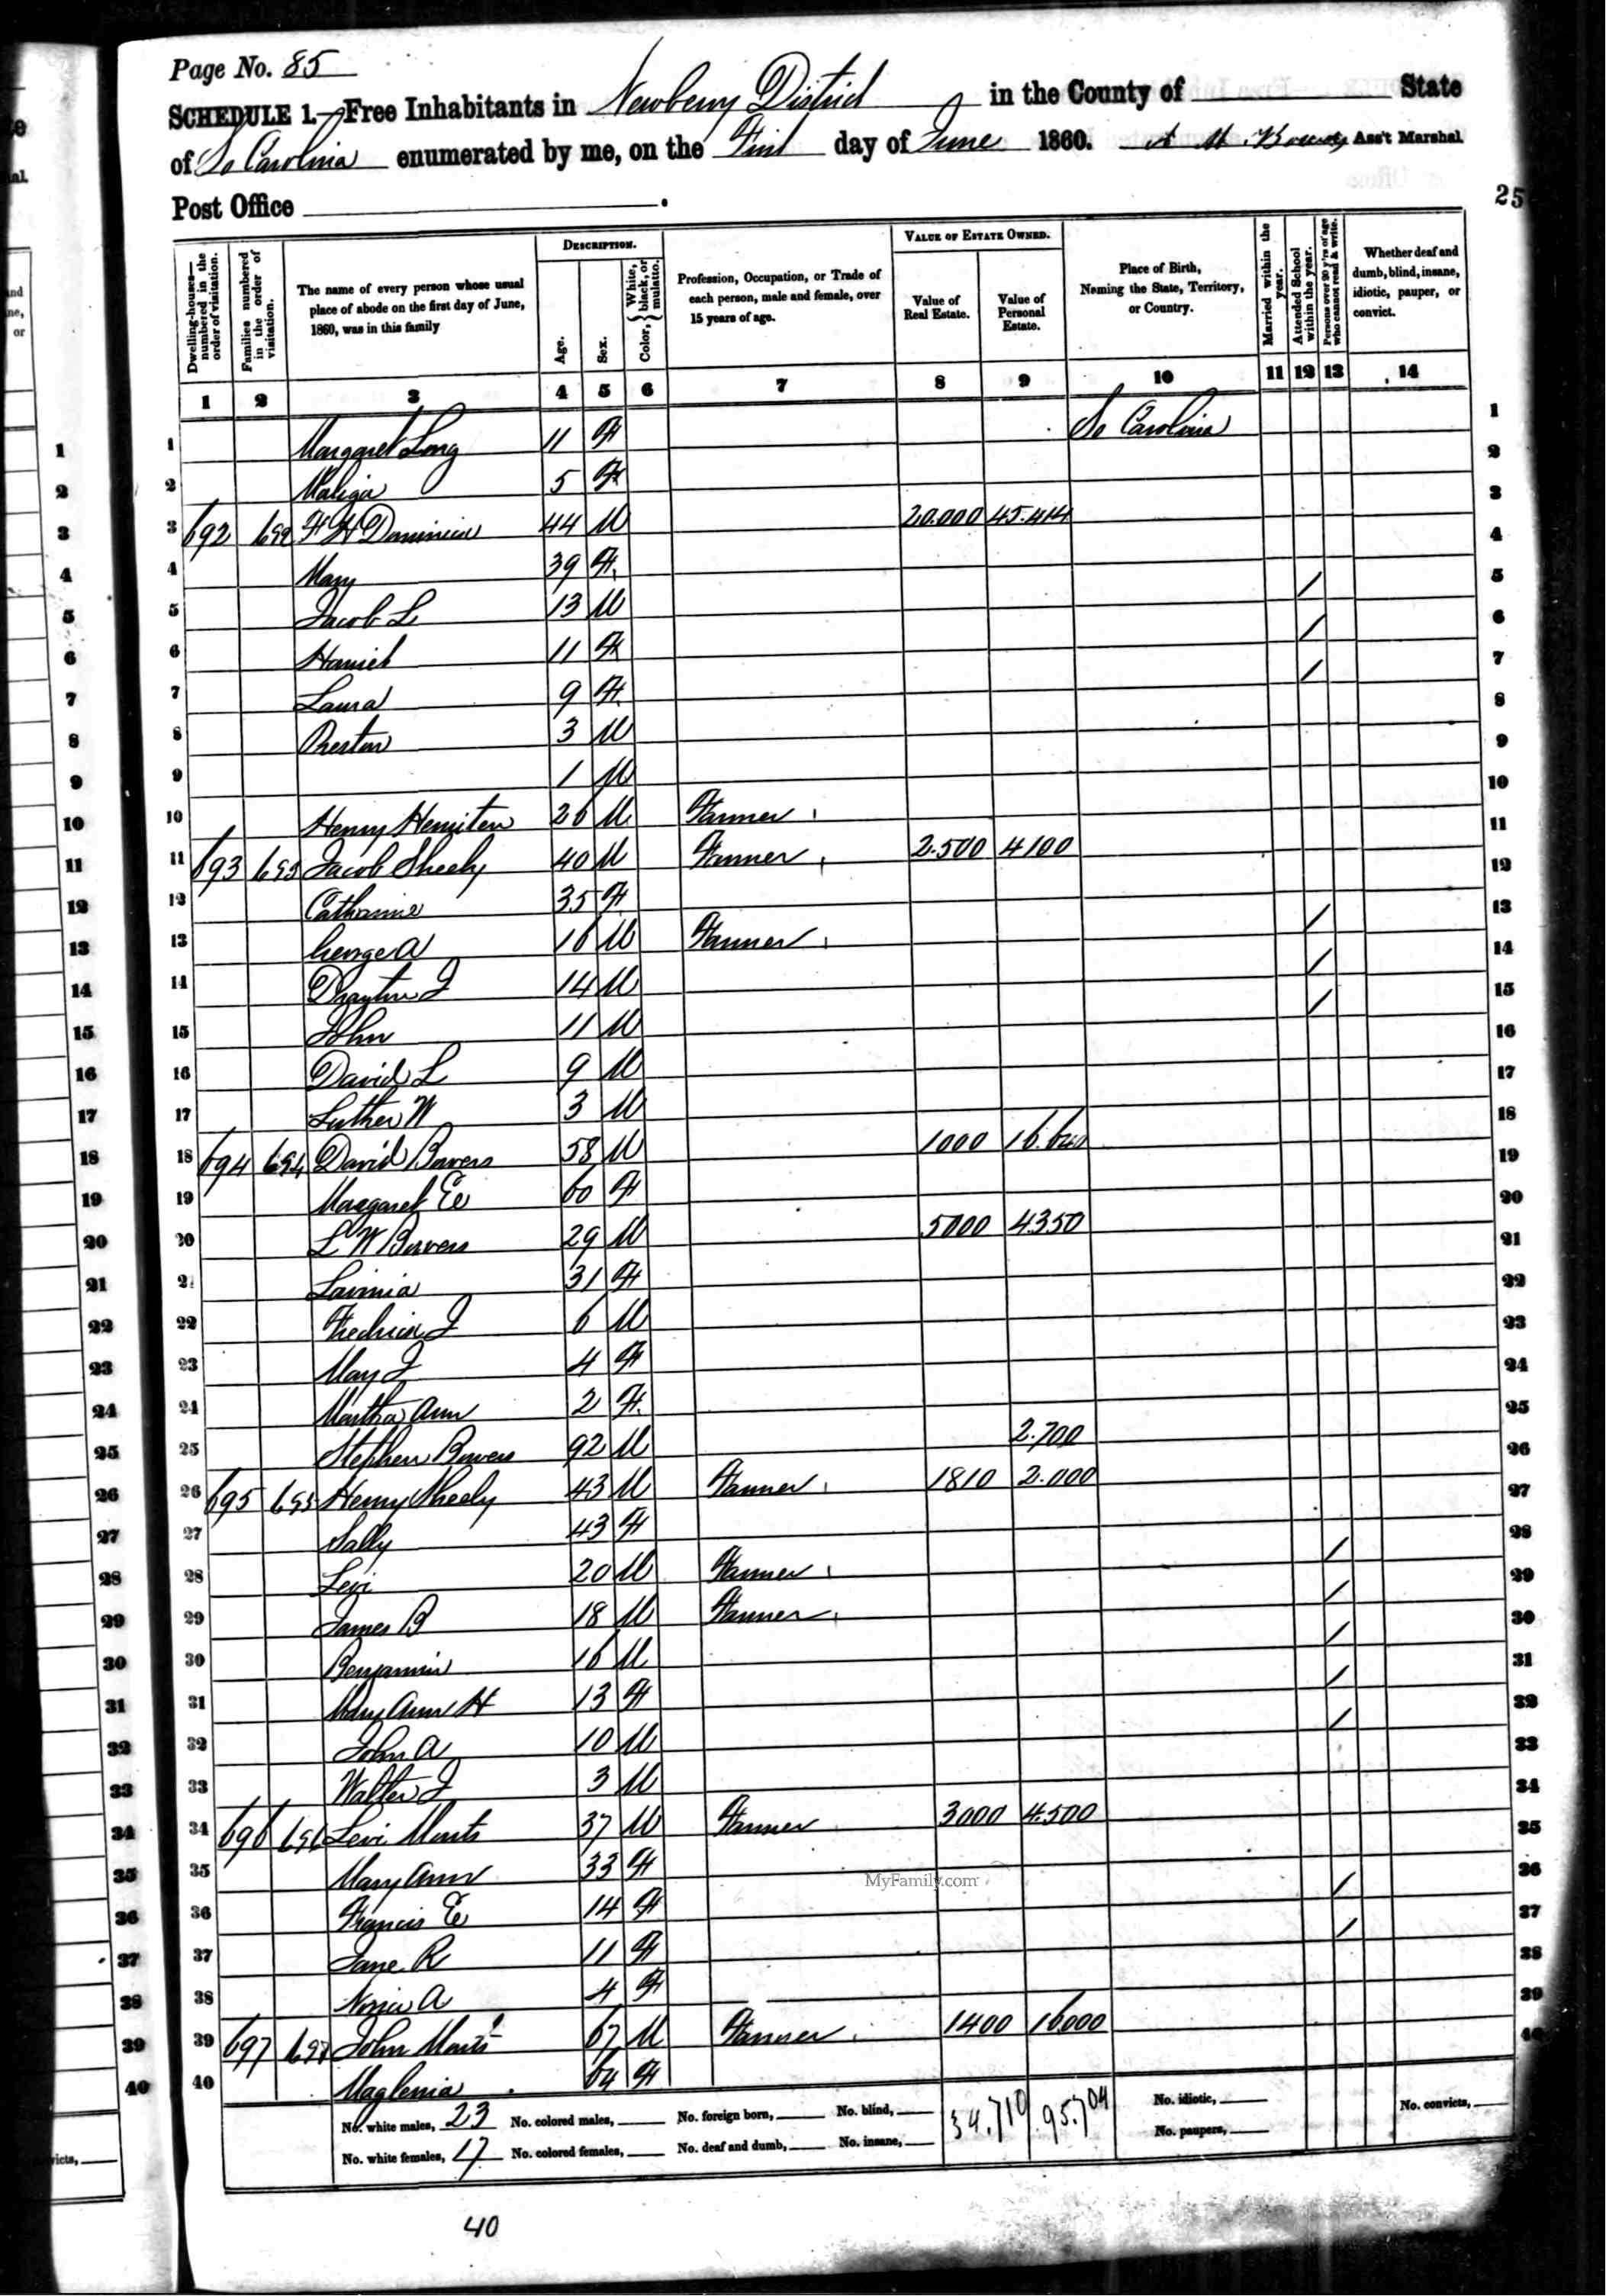 Page No. 85
SCHEDULE 1.—Free Inhabitants in Newberry District in the County of State
of So Carolina enumerated by me, on the First day of June 1860. A M Ass't Marshal.
Post Office
25
Dwelling-houses—numbered in the order of visitation.
Families numbered in the order of visitation.
The name of every person whose usual place of abode on the first day of June, 1860, was in this family
DESCRIPTION.
Age.
Sex.
Color, White, black, or mulatto.
Profession, Occupation, or Trade of each person, male and female, over 15 years of age.
VALUE OF ESTATE OWNED.
Value of Real Estate.
Value of Personal Estate.
Place of Birth, Naming the State, Territory, or Country.
Married within the year.
Attended School within the year.
Persons over 20 y'rs of age who cannot read & write.
Whether deaf and dumb, blind, insane, idiotic, pauper, or convict.
1 2 3 4 5 6 7 8 9 10 11 12 13 14
1 Margaret Long 11 F So Carolina 1
2 5 F 2
3 692 692 Dominick 44 M 20.000 45.414 3
4 Mary 39 F 4
5 Jacob L 13 M / 5
6 Harriet 11 F / 6
7 Laura 9 F / 7
8 Preston 3 M 8
9 1 M 9
10 Henry 26 M Farmer 10
11 693 693 Jacob Sheely 40 M Farmer 2.500 4100 11
12 Catharine 35 F 12
13 George A 16 M Farmer / 13
14 Drayton J 14 M / 14
15 John 11 M / 15
16 David L 9 M 16
17 Luther W 3 M 17
18 694 694 David Bowers 58 M 1000 18
19 Margaret E 60 F 19
20 L W Bowers 29 M 5000 4350 20
21 31 F 21
22 Fredrick J 6 M 22
23 Mary J 4 F 23
24 Martha Ann 2 F 24
25 Stephen Bowers 92 M 2.700 25
26 695 695 Henry Sheely 43 M Farmer 1810 2.000 26
27 Sally 43 F 27
28 Levi 20 M Farmer / 28
29 James B 18 M Farmer / 29
30 Benjamin 16 M / 30
31 Mary Ann H 13 F / 31
32 John A 10 M / 32
33 Walter J 3 M 33
34 696 696 Levi Monts 37 M Farmer 3000 4.500 34
35 Mary Ann 33 F 35
36 Francis E 14 F / 36
37 Jane R 11 F / 37
38 A 4 F 38
39 697 697 John Monts 67 M Farmer 1400 16000 39
40 64 F 40
No. white males, 23 No. colored males, No. foreign born, No. blind, 34.710 95.704 No. idiotic, No. convicts,
No. white females, 17 No. colored females, No. deaf and dumb, No. insane, No. paupers,
40
MyFamily.com